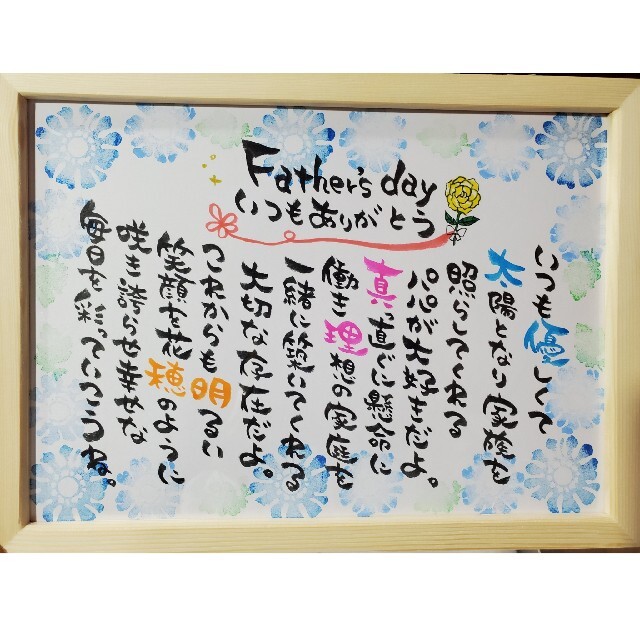 Father's day
いつもありがとう
いつも優しくて
太陽となり家族を
照らしてくれる
パパが大好きだよ。
真っ直ぐに懸命に
働き理想の家庭を
一緒に築いてくれる
大切な存在だよ。
これからも明るい
笑顔を花穂のように
咲き誇らせ幸せな
毎日を彩っていこうね。